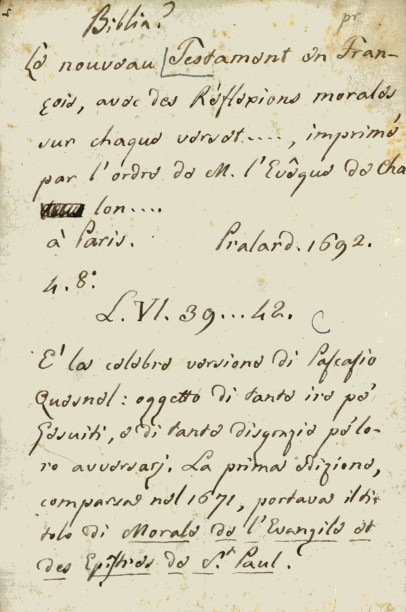 Biblia?
pr
Le nouveau Testament en Fran-
çois, avec des Réflexions morales
sur chaque verset...., imprimé
par l'ordre de M. l'Evêque de Cha
lon....
à Paris. Pralard. 1692.
4. 8°.
L. VI. 39...42.
E' la celebre versione di Pascasio
Quesnel: oggetto di tante ire pe'
Gesuiti, e di tante disgrazie pe' lo-
ro avversarj. La prima edizione,
comparsa nel 1671, portava il ti-
tolo di Morale de l'Evangile et
des Epîtres de S.t Paul.